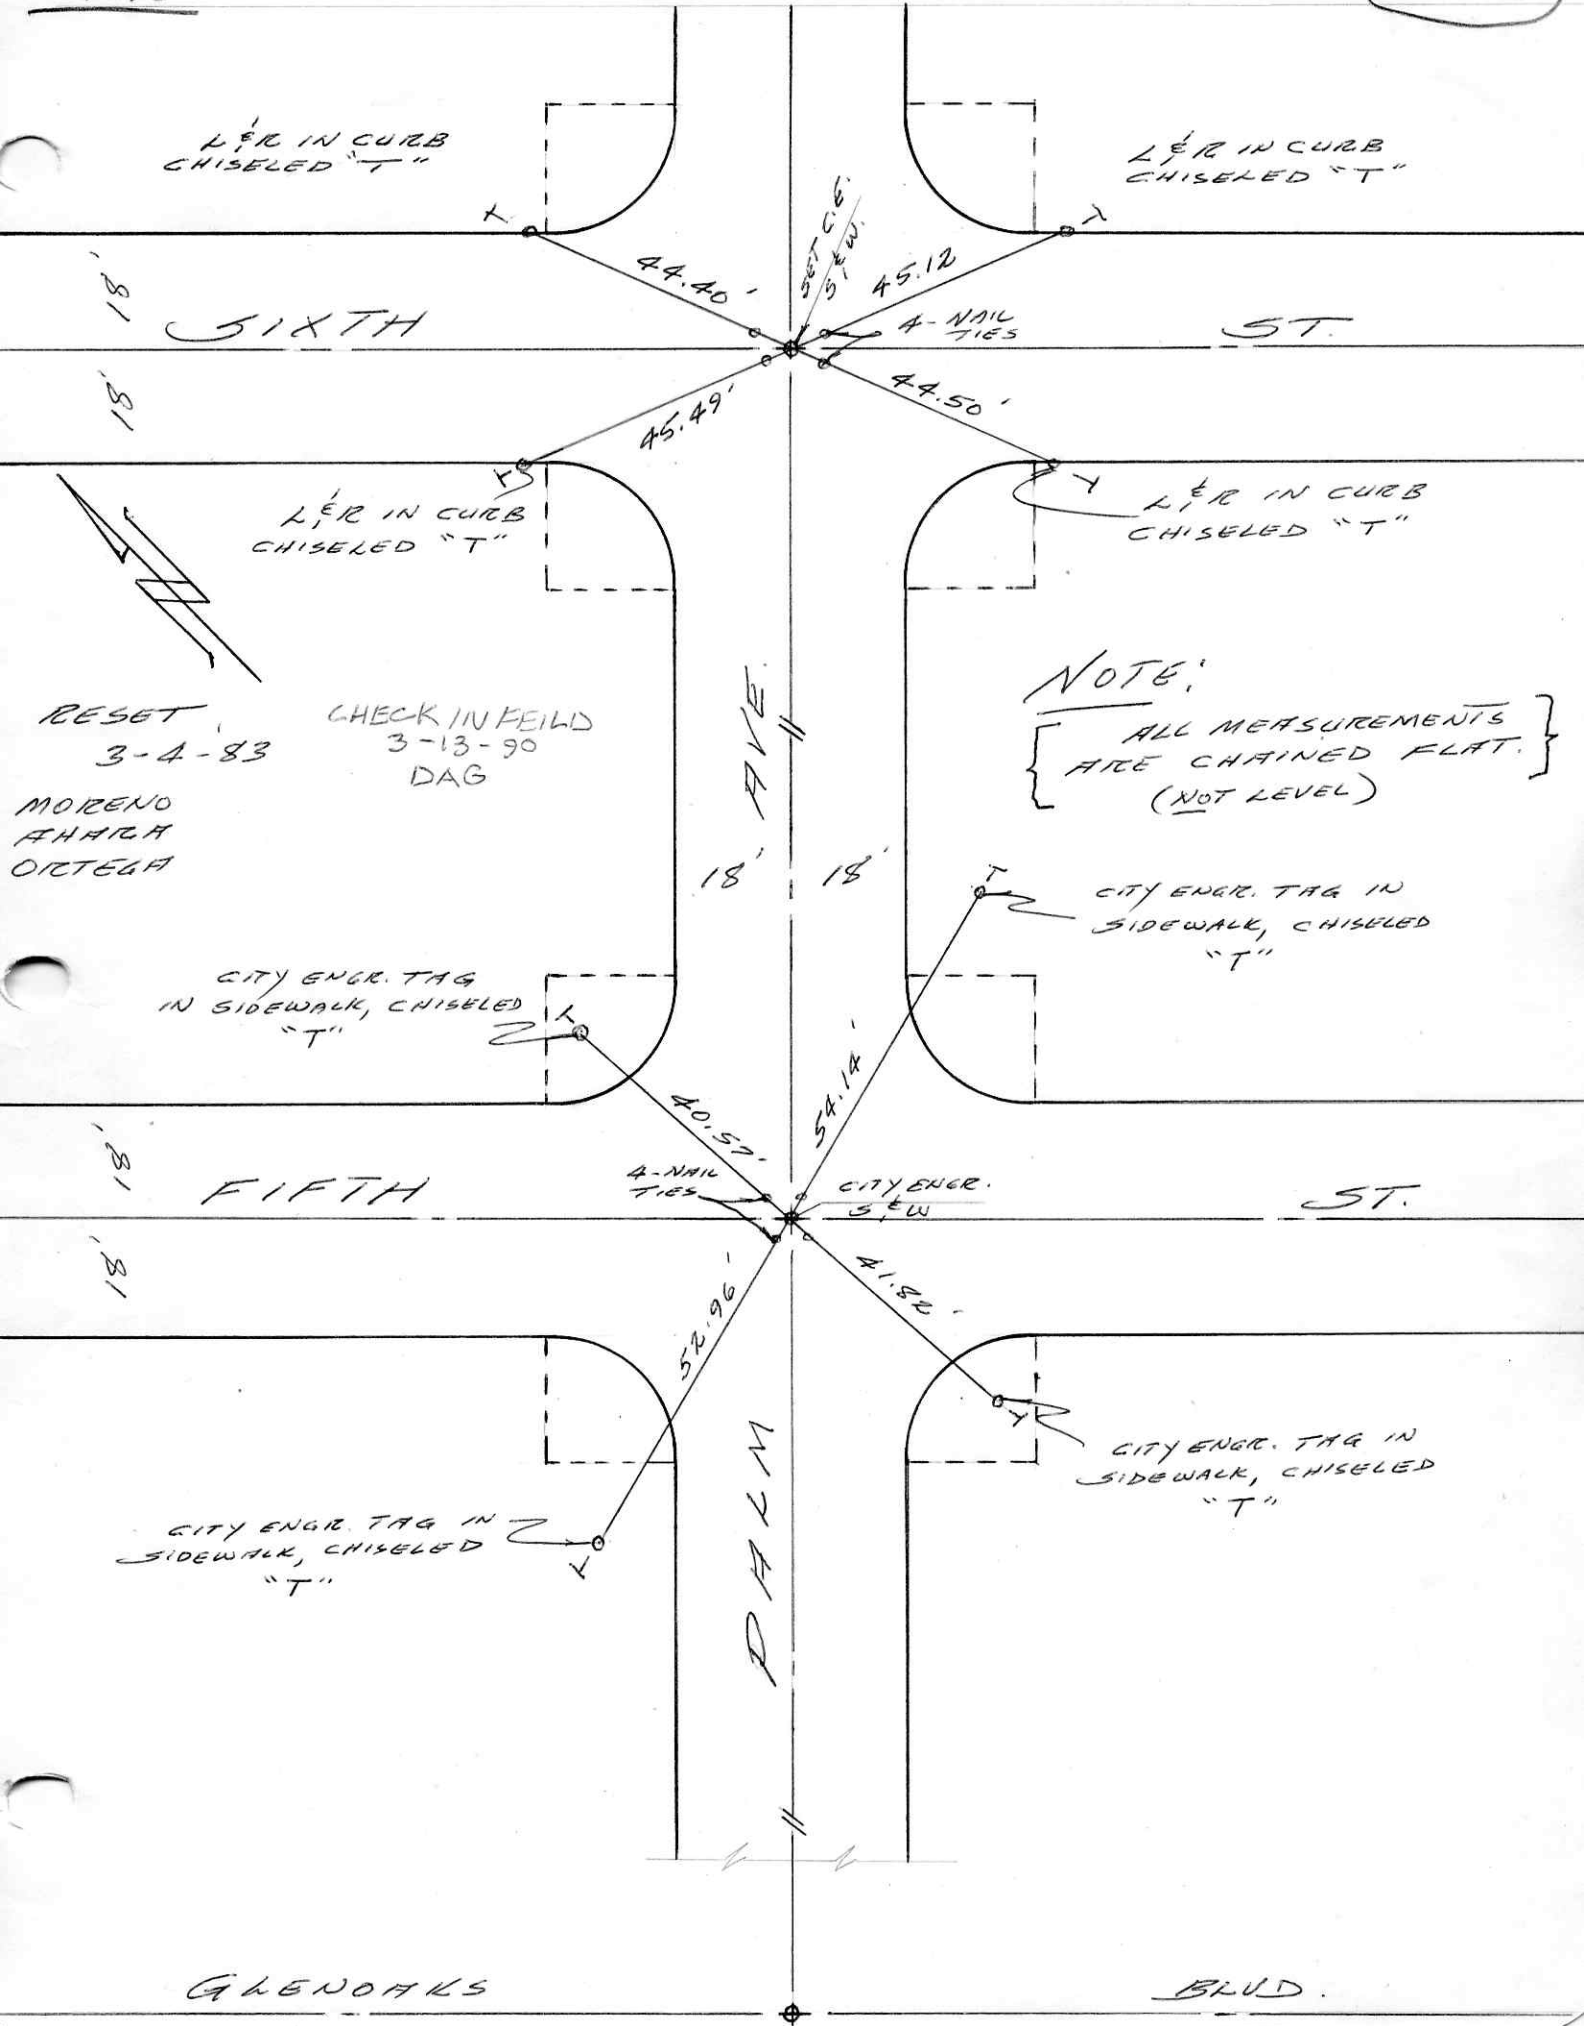 L & R IN CURB
CHISELED "T"
L & R IN CURB
CHISELED "T"
T
T
SET C.E.
S. & W.
44.40'
45.12
18'
SIXTH
4-NAIL
TIES
ST.
18'
45.49'
44.50'
T
T
L & R IN CURB
CHISELED "T"
L & R IN CURB
CHISELED "T"
N
RESET
3-4-83
MORENO
AHARA
ORTEGA
CHECK IN FEILD
3-13-90
DAG
NOTE:
ALL MEASUREMENTS
ARE CHAINED FLAT.
(NOT LEVEL)
AVE.
18'
18'
T
CITY ENGR. TAG IN
SIDEWALK, CHISELED
"T"
CITY ENGR. TAG
IN SIDEWALK, CHISELED
"T"
T
40.57'
54.14'
18'
FIFTH
4-NAIL
TIES
CITY ENGR.
S. & W
ST.
18'
52.96'
41.82'
T
CITY ENGR. TAG IN
SIDEWALK, CHISELED
"T"
CITY ENGR. TAG IN
SIDEWALK, CHISELED
"T"
T
PALM
GLENOAKS
BLVD.